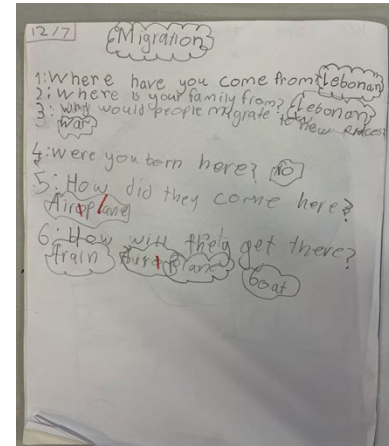 12/7
Migration
1: Where have you come from? Lebonan
2: Where is your family from? Lebonan
3: why would people migrate to new places?
war
4: Were you born here? NO
5: How did they come here?
Airoplane
6: How will they get there?
train Airoplane boat